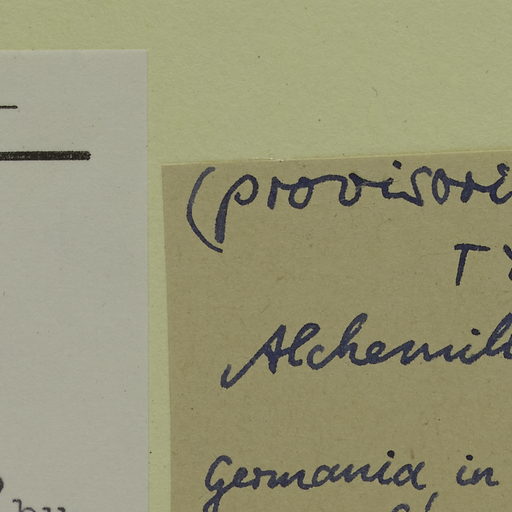 (provisori
TY
Alchemill
Germania in